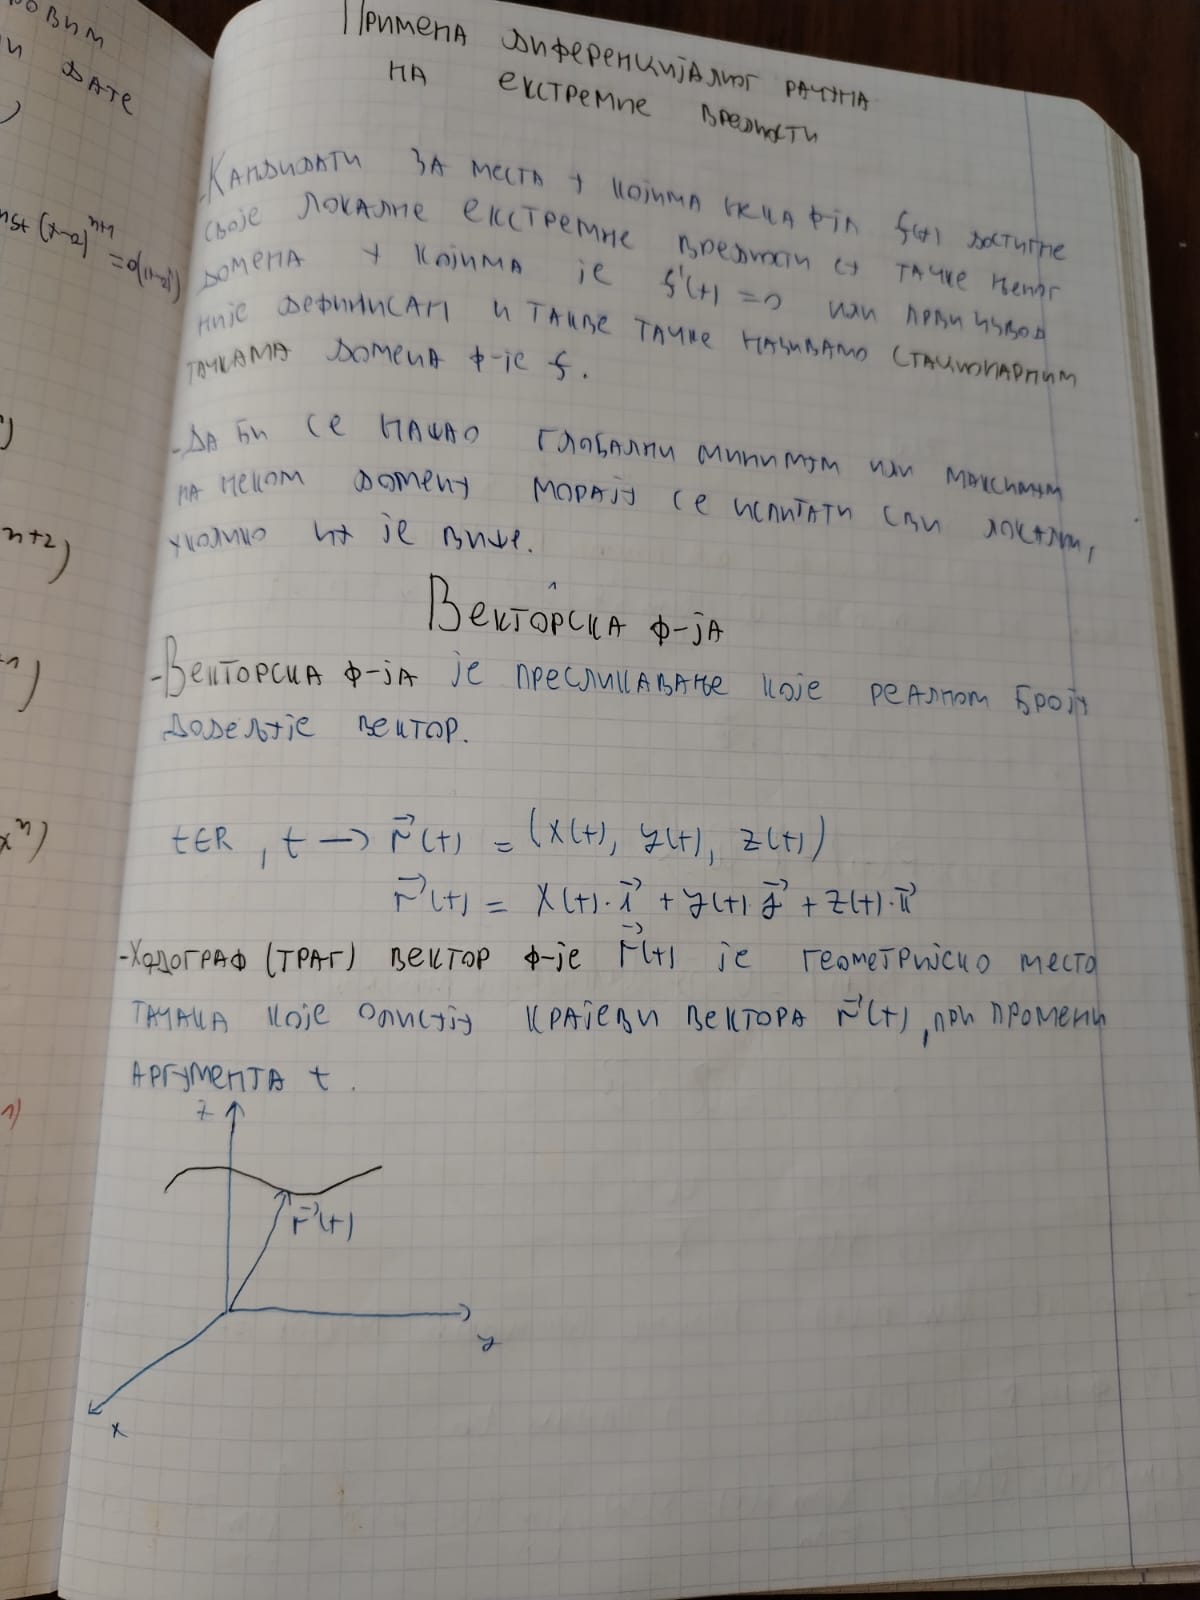 Примена диференцијалног рачуна
на екстремне вредности
-Кандидати за места у којима нека ф-ја f(x) достигне
своје локалне екстремне вредности су тачке њеног
домена у којима је f'(x) = 0 или први извод
није дефинисан и такве тачке називамо стационарним
тачкама домена ф-је f.
-Да би се нашао глобални минимум или максимум
на неком домену морају се испитати сви локални,
уколико их је више.
Векторска ф-ја
-Векторска ф-ја је пресликавање које реалном броју
додељује вектор.
t∈R, t → r⃗(t) = (x(t), y(t), z(t))
r⃗(t) = x(t)·i⃗ + y(t)·j⃗ + z(t)·k⃗
-Ходограф (траг) вектор ф-је r⃗(t) је геометријско место
тачака које описују крајеви вектора r⃗(t), при промени
аргумента t.
z
r⃗(t)
y
x
ровим
и дате
n+2)
xⁿ)